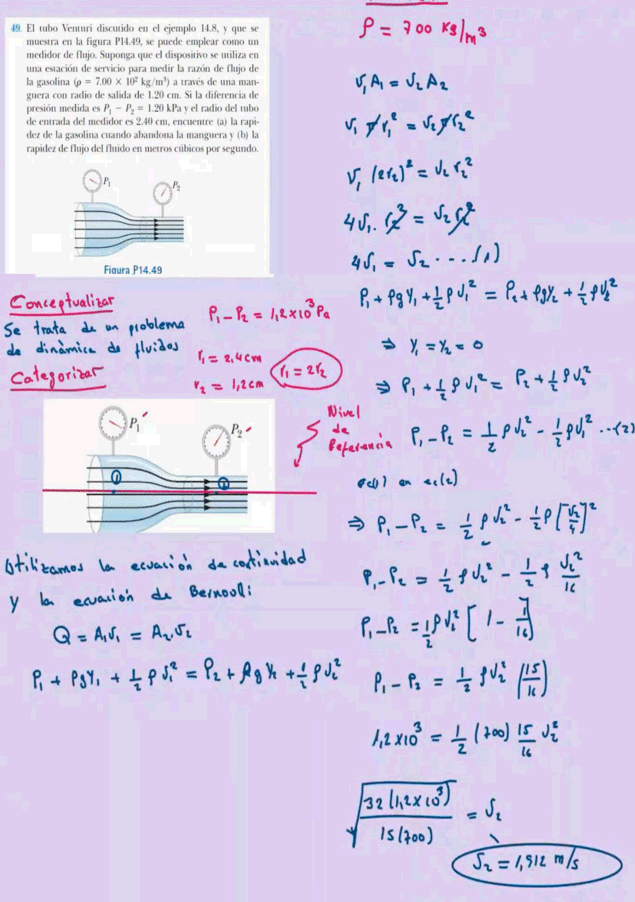 49 El tubo Venturi discutido en el ejemplo 14.8, y que se
muestra en la figura P14.49, se puede emplear como un
medidor de flujo. Suponga que el dispositivo se utiliza en
una estación de servicio para medir la razón de flujo de
la gasolina (ρ = 7.00 × 10² kg/m³) a través de una man-
guera con radio de salida de 1.20 cm. Si la diferencia de
presión medida es P₁ − P₂ = 1.20 kPa y el radio del tubo
de entrada del medidor es 2.40 cm, encuentre (a) la rapi-
dez de la gasolina cuando abandona la manguera y (b) la
rapidez de flujo del fluido en metros cúbicos por segundo.
P₁
P₂
Figura P14.49
Conceptualizar
Se trata de un problema
de dinámica de fluidos
Categorizar
P₁ − P₂ = 1,2×10³ Pa
r₁ = 2,4 cm
r₂ = 1,2 cm
r₁ = 2r₂
P₁
P₂
① ②
Nivel
de
Referencia
Utilizamos la ecuación de continuidad
y la ecuación de Bernoulli
Q = A₁v₁ = A₂v₂
P₁ + ρgy₁ + ½ρv₁² = P₂ + ρgy₂ + ½ρv₂²
ρ = 700 kg/m³
v₁A₁ = v₂A₂
v₁ π r₁² = v₂ π r₂²
v₁ (2r₂)² = v₂ r₂²
4v₁ . r₂² = v₂ r₂²
4v₁ = v₂ ... (1)
P₁ + ρgy₁ + ½ρv₁² = P₂ + ρgy₂ + ½ρv₂²
⇒ y₁ = y₂ = 0
⇒ P₁ + ½ρv₁² = P₂ + ½ρv₂²
P₁ − P₂ = ½ρv₂² − ½ρv₁² ...(2)
ec(1) en ec(2)
⇒ P₁ − P₂ = ½ρv₂² − ½ρ[v₂/4]²
P₁ − P₂ = ½ρv₂² − ½ρ v₂²/16
P₁ − P₂ = ½ρv₂² [1 − 1/16]
P₁ − P₂ = ½ρv₂² (15/16)
1,2×10³ = ½ (700) 15/16 v₂²
√(32(1,2×10³)/15(700)) = v₂
v₂ = 1,912 m/s